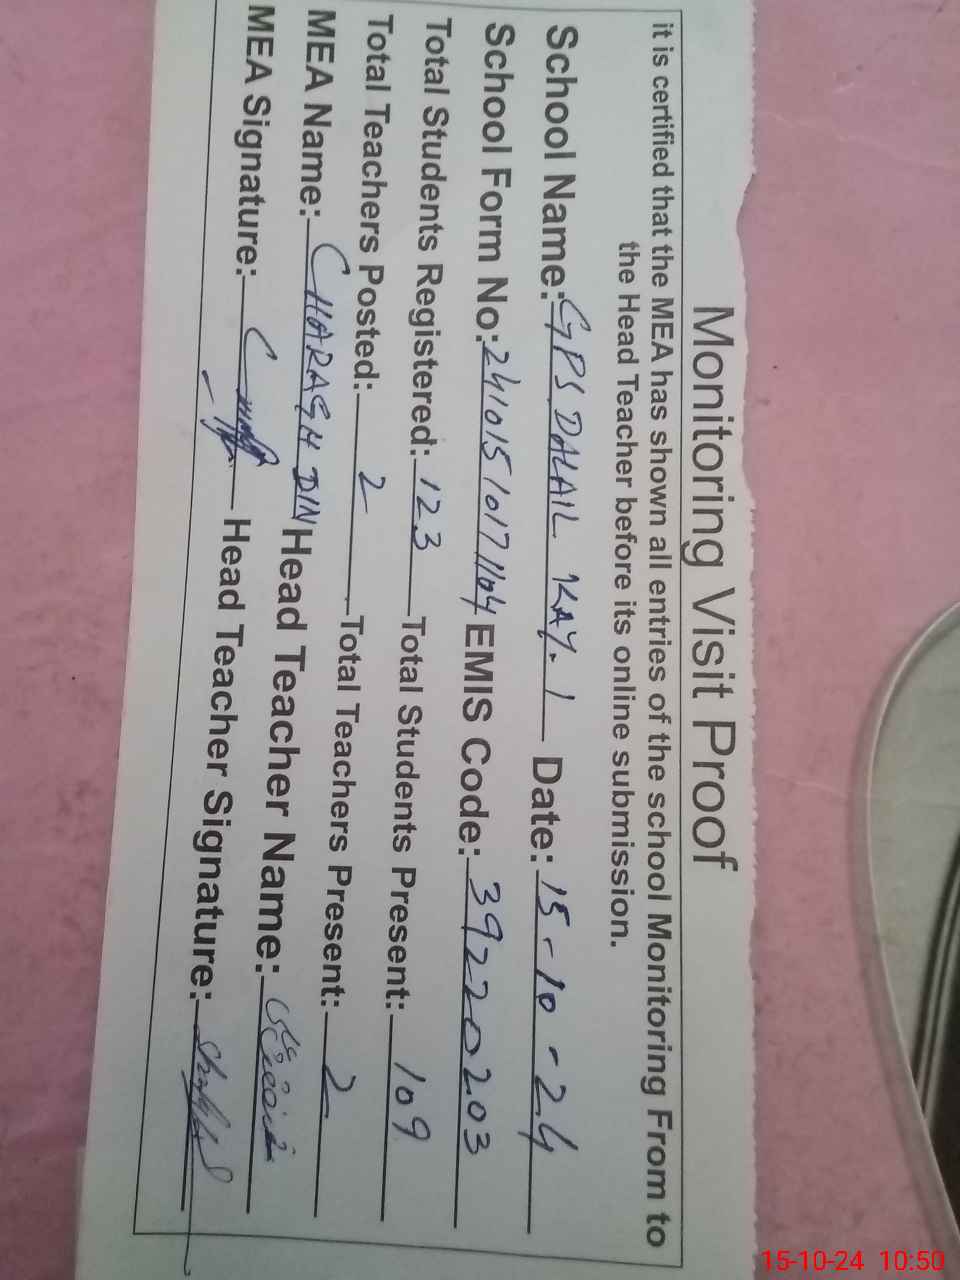 Monitoring Visit Proof
it is certified that the MEA has shown all entries of the school Monitoring From to
the Head Teacher before its online submission.
School Name: GPS DALAIL KAY. 1 Date: 15-10-24
School Form No: 24101510171104 EMIS Code: 39220203
Total Students Registered: 123 Total Students Present: 109
Total Teachers Posted: 2 Total Teachers Present: 2
MEA Name: CHARAGH DIN Head Teacher Name:
MEA Signature: Head Teacher Signature:
15-10-24 10:50